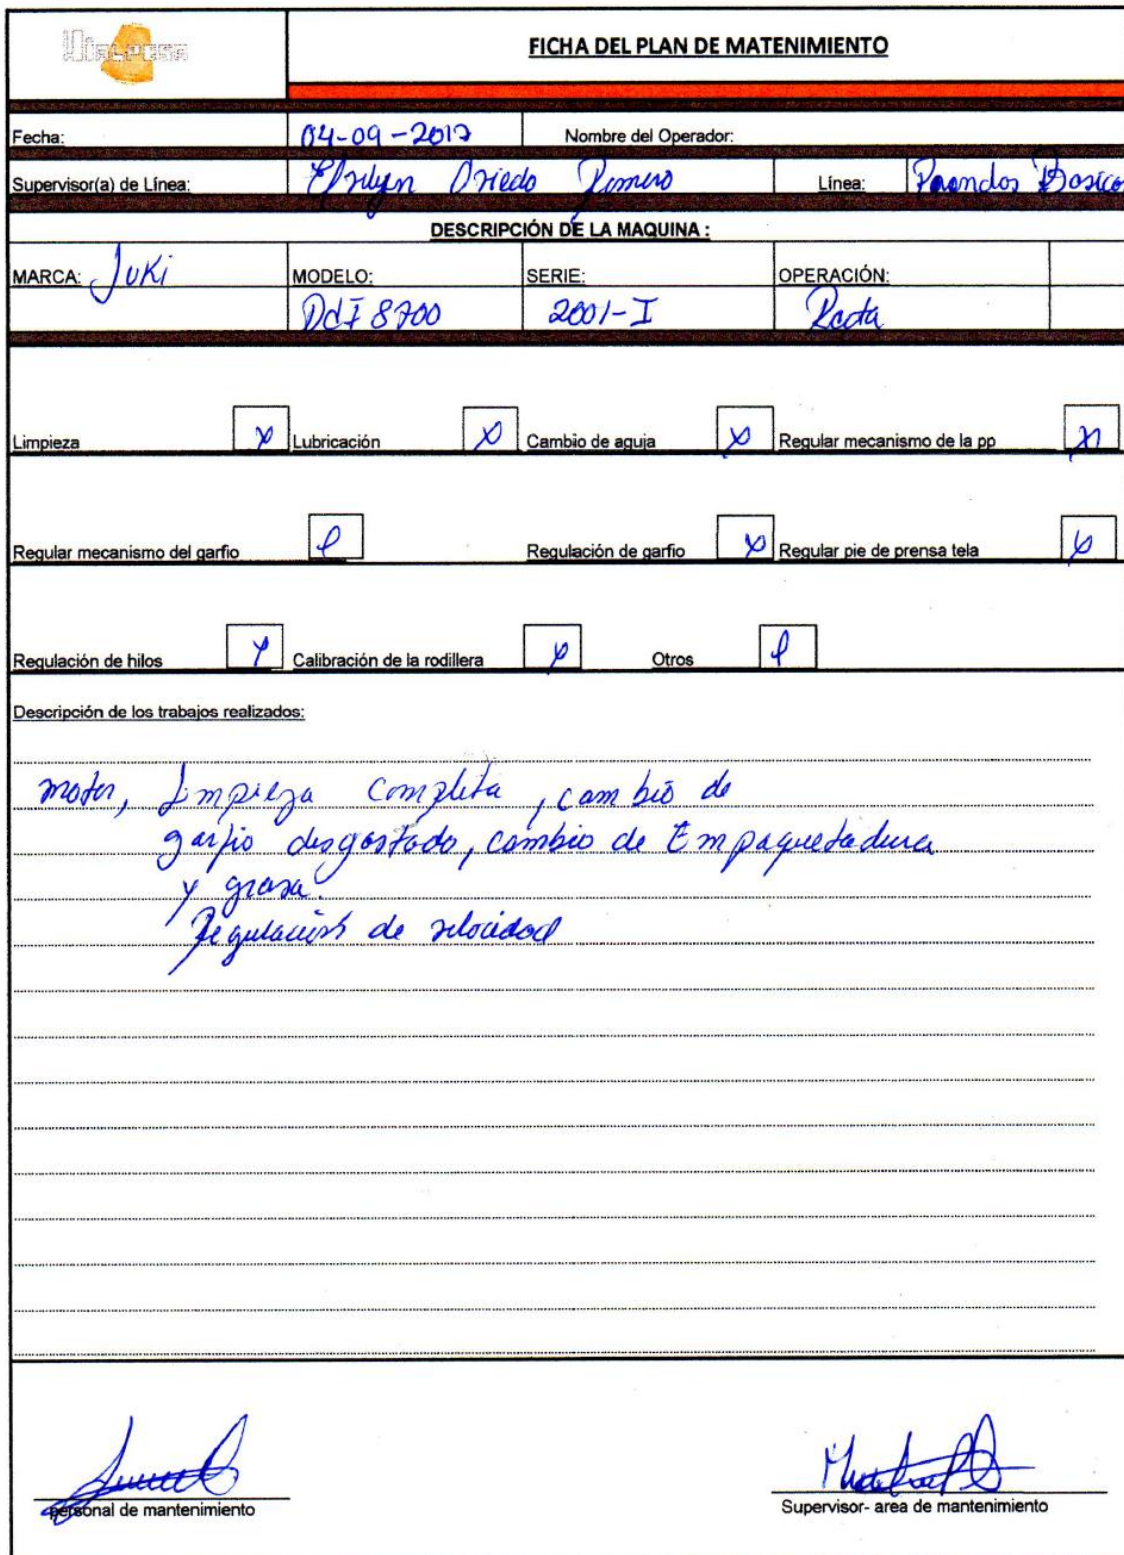 Hialpesa
FICHA DEL PLAN DE MATENIMIENTO
Fecha: 04-09-2017 Nombre del Operador:
Supervisor(a) de Línea: Oviedo Romero Línea: Basico
DESCRIPCIÓN DE LA MAQUINA :
MARCA: JUKi MODELO: SERIE: OPERACIÓN:
8700 2001-I Recta
Limpieza x Lubricación x Cambio de aguja x Regular mecanismo de la pp x
Regular mecanismo del garfio Regulación de garfio x Regular pie de prensa tela x
Regulación de hilos Calibración de la rodillera x Otros
Descripción de los trabajos realizados:
motor, Limpieza completa, cambio de
garfio desgastado, cambio de Empaquetadura
y grasa.
Regulación de velocidad
personal de mantenimiento Supervisor- area de mantenimiento